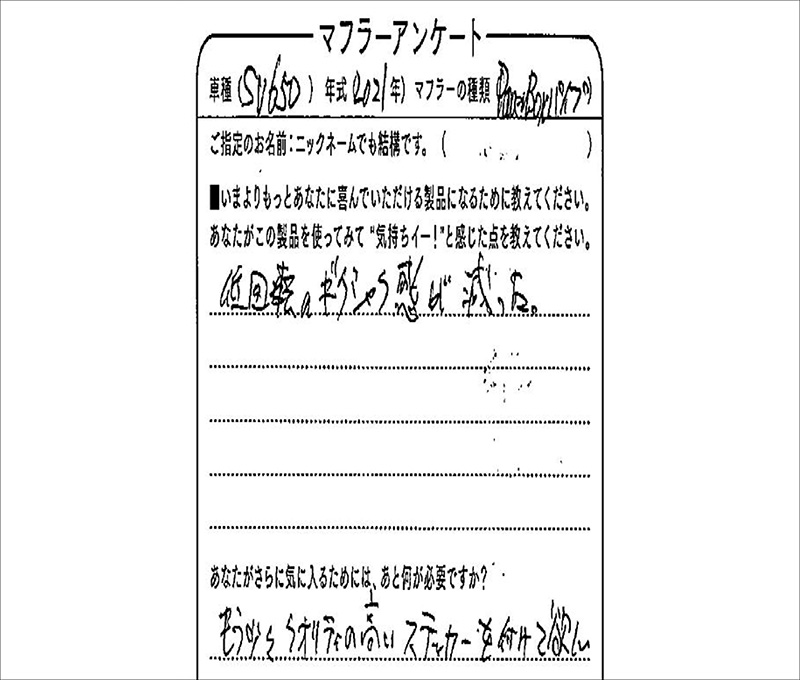 マフラーアンケート
車種(SV650) 年式(2021年) マフラーの種類(PowerBoxパイプ)
ご指定のお名前:ニックネームでも結構です。( )
■いまよりもっとあなたに喜んでいただける製品になるために教えてください。
あなたがこの製品を使ってみて“気持ちイー!”と感じた点を教えてください。
低回転のギクシャク感が減った。
あなたがさらに気に入るためには、あと何が必要ですか?
もう少しクオリティの高いステッカーを付けて欲しい